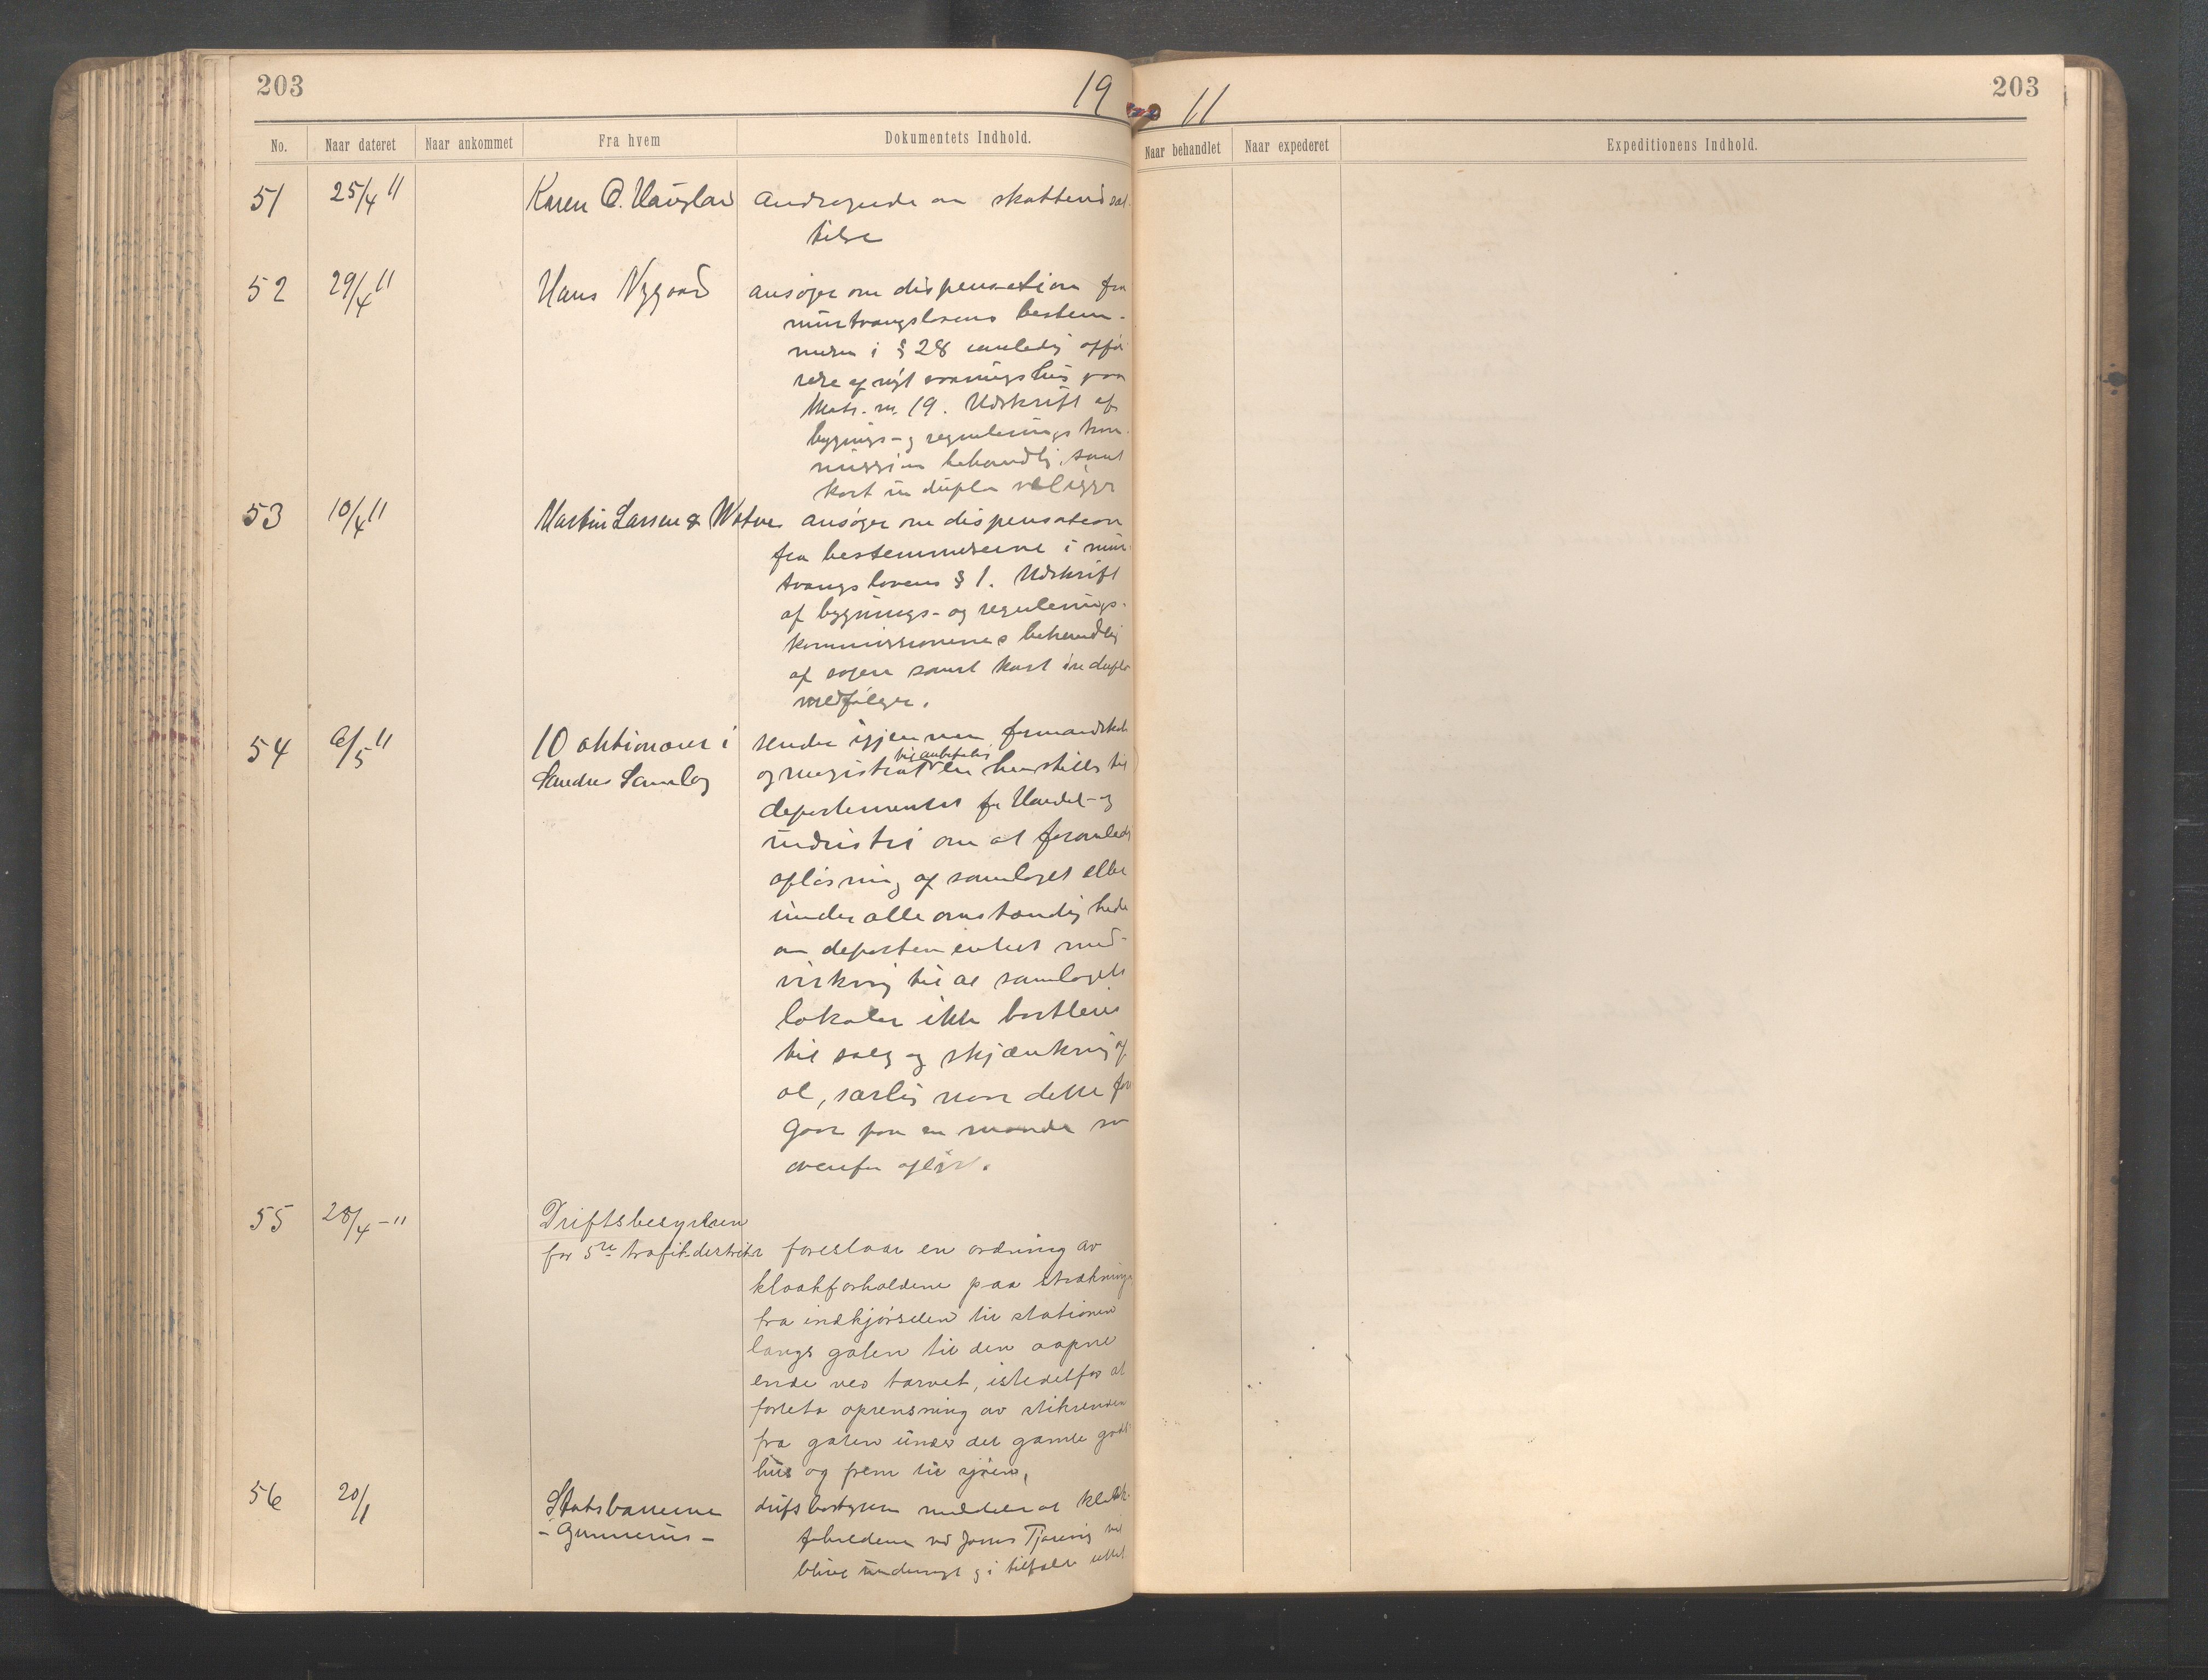 203
19
11
203
No.
Naar dateret
Naar ankommet
Fra hvem
Dokumentets Indhold.
Naar behandlet
Naar expederet
Expeditionens Indhold.
51 25/4 11 Karen Andragende om skattened sæt-
telse
52 29/4 11 Hans Nygaard ansøger om dispensation fra
murtvangslovens bestem-
melser i § 28 opfø
relse af nyt vaaningshus paa
Matr. nr. 19. Udskrift af
bygnings- og regulerings kom-
mission behandlg. samt
kort in duplo vedligger
53 10/4 11 Martin Larsen & Watne ansøger om dispensation
fra bestemmelserne i mur-
tvangslovens § 1. Udskrift
af bygnings- og regulerings-
kommissionens behandlig
af sagen samt kort in duplo
medfølger.
54 6/5 11 10 aktionærer i sender igjennem formandskab
til anbefaling
Sandnes Samlag og magistrat en henstiller til
departementet for Handel- og
industri om at foranledi
opløsning af samlaget eller
under alle omstændighede
om departementets med-
virkning til at samlagets
lokaler ikke bortleies
til salg og skjænkning af
øl, særlig naar dette for
gaar paa en maade so
ovenfor
55 28/4 - 11 Driftsbestyrelsen
for 5te trafikdistrikt foreslaar en ordning av
kloakforholdene paa strækninge
fra indkjørselen til stationen
langs gaten til den aapne
ende ved torvet, istedetfor at
foreta oprensning av stikrenden
fra gaten under det gamle gods
hus og frem til sjøen,
56 20/1 Statsbanerne driftsbestyren meddeler at kloakk-
- Gunnerius - forholdene ved Jonas Tjærevig vil
blive undersøgt og i tilfælde